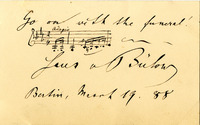 Go on with the funeral!
Adagio
Hans v Bülow
Berlin, March 19. 88